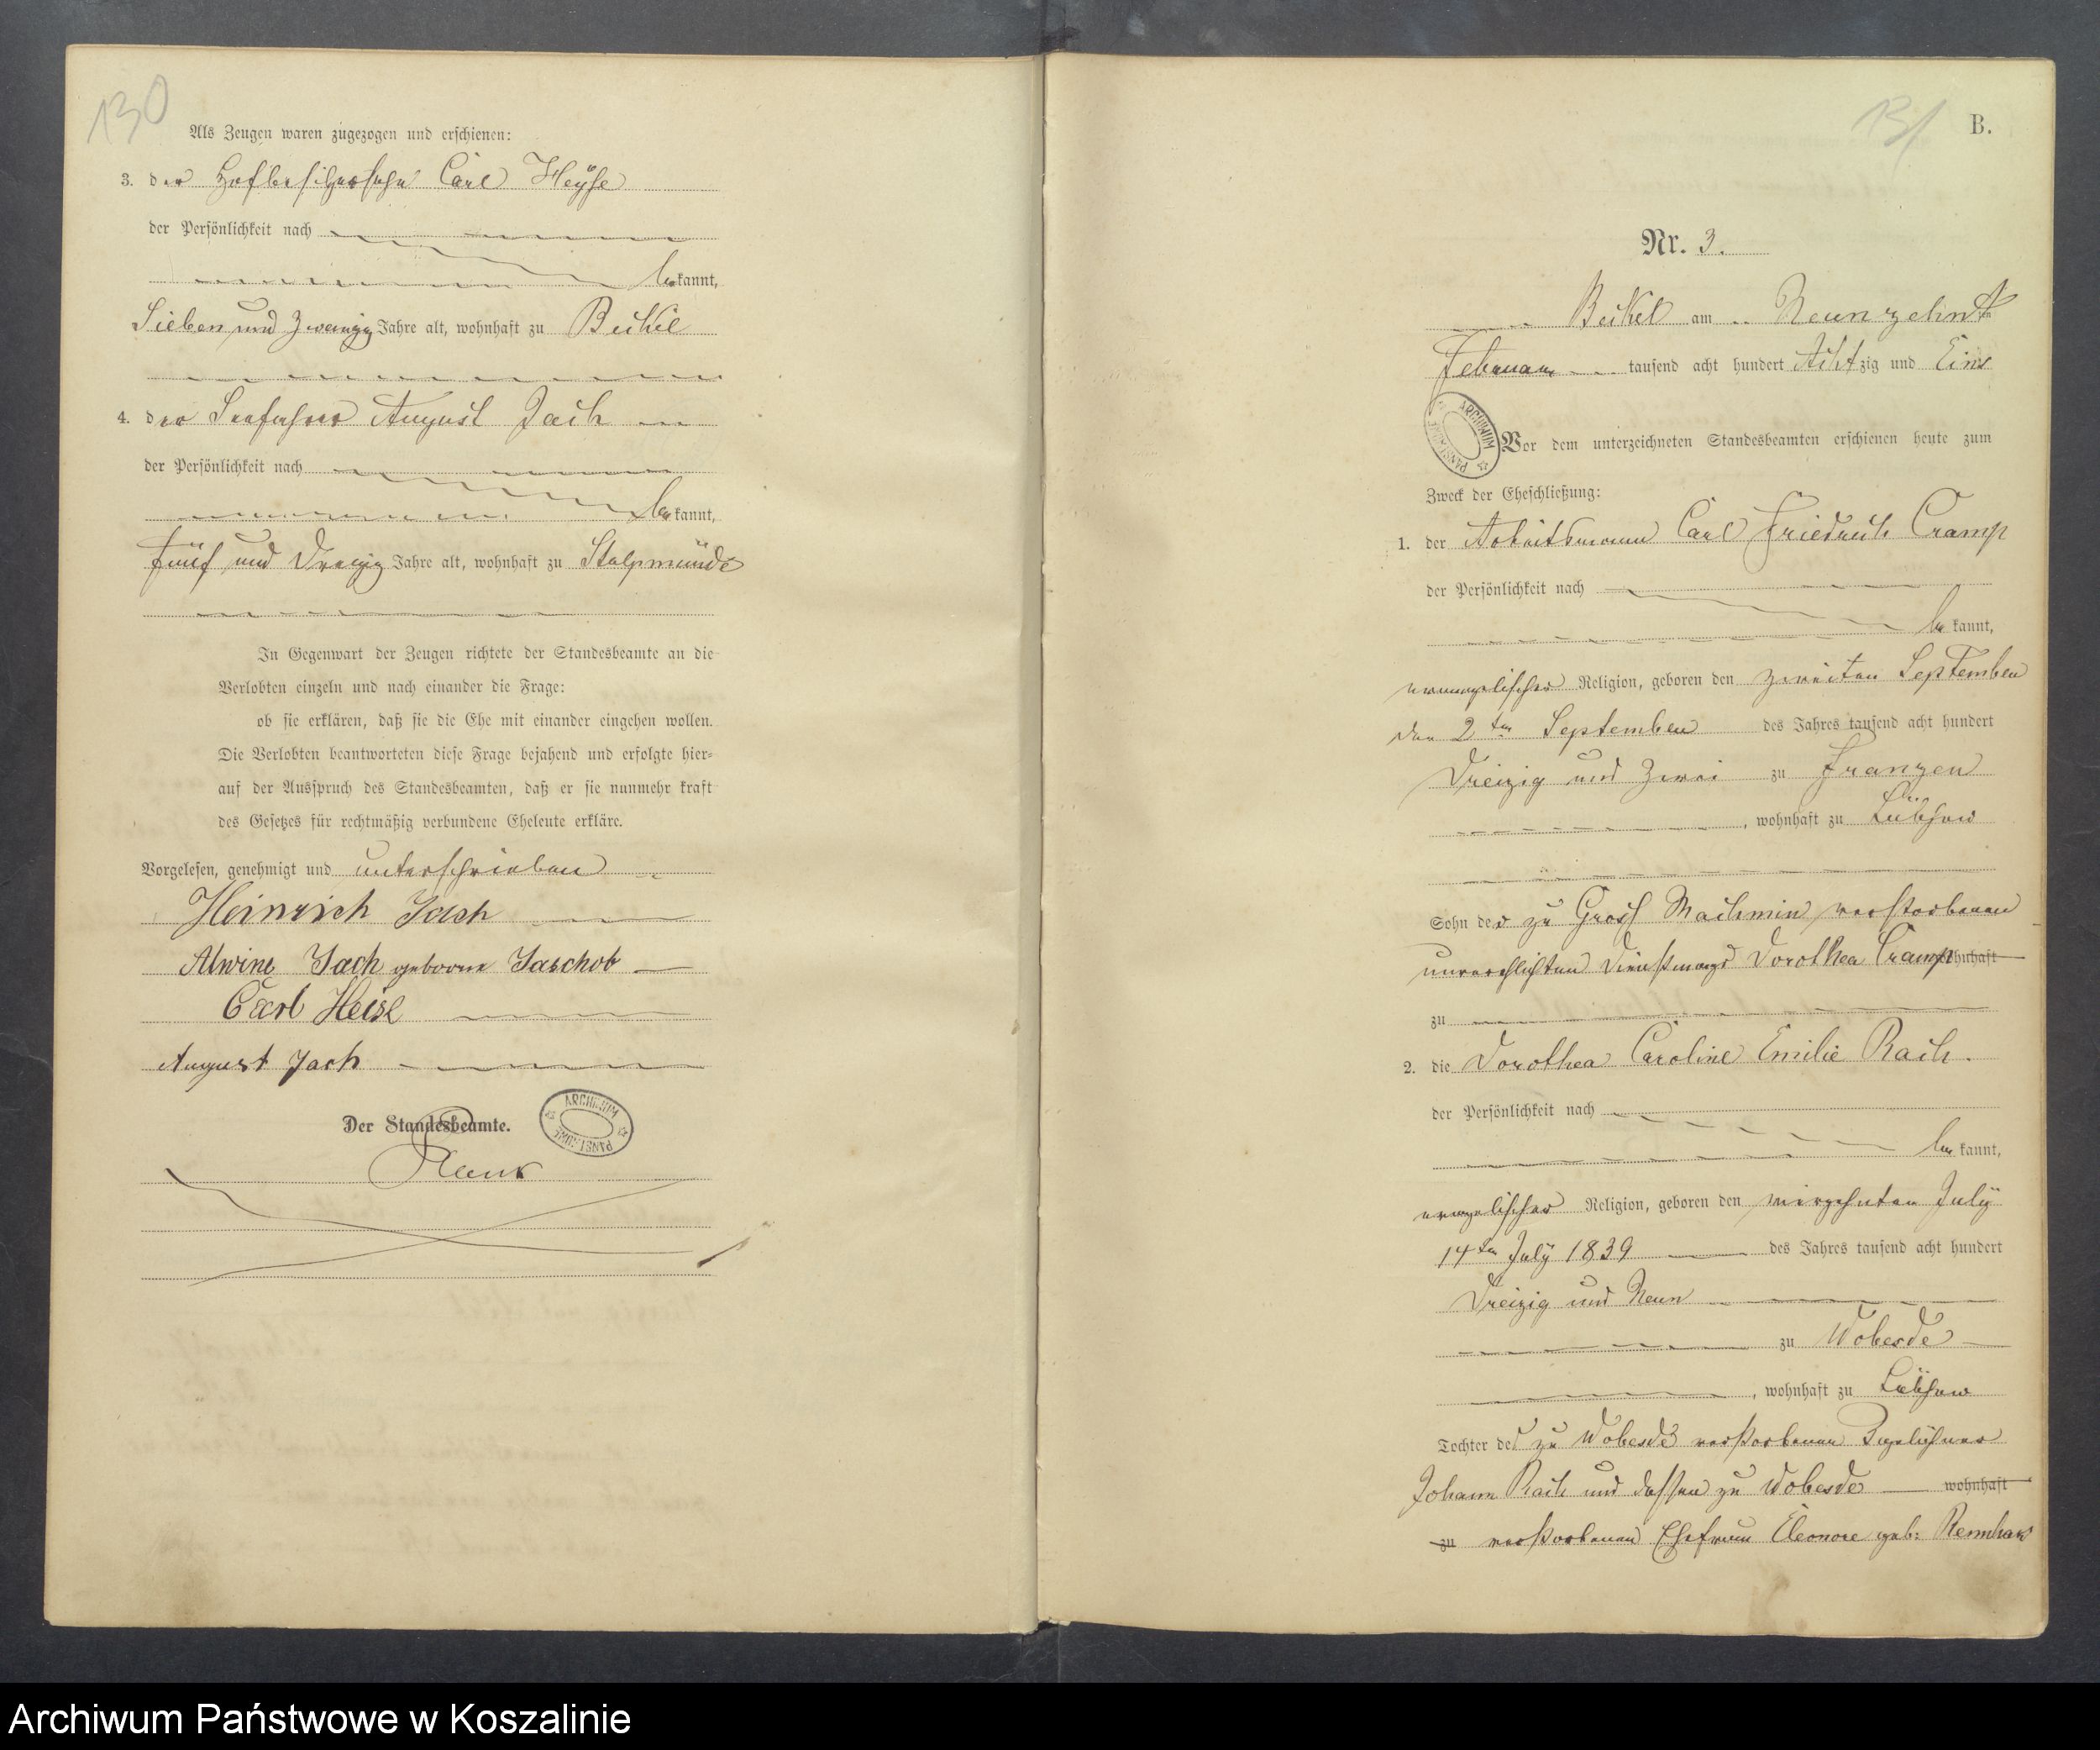 130
Als Zeugen waren zugezogen und erschienen:
3. der Hofbesitzersohn Carl Heyse
der Persönlichkeit nach
bekannt,
Sieben und Zwanzig Jahre alt, wohnhaft zu Beckel
4. der Seefahrer August Jach
der Persönlichkeit nach
bekannt,
fünf und Dreizig Jahre alt, wohnhaft zu Stolpmünde
In Gegenwart der Zeugen richtete der Standesbeamte an die
Verlobten einzeln und nach einander die Frage:
ob sie erklären, daß sie die Ehe mit einander eingehen wollen.
Die Verlobten beantworteten diese Frage bejahend und erfolgte hier-
auf der Ausspruch des Standesbeamten, daß er sie nunmehr kraft
des Gesetzes für rechtmäßig verbundene Eheleute erkläre.
Vorgelesen, genehmigt und unterschrieben
Heinrich Jach
Alwine Jach geborne Jaschob
Carl Heise
August Jach
Der Standesbeamte.
ARCHIWUM PAŃSTWOWE
131
B.
Nr. 3.
Beckel am Neunzehnten
Februar tausend acht hundert Achtzig und Eins
ARCHIWUM PAŃSTWOWE
Vor dem unterzeichneten Standesbeamten erschienen heute zum
Zweck der Eheschließung:
1. der Arbeitsmann Carl Friedrich Cramp
der Persönlichkeit nach
bekannt,
evangelischer Religion, geboren den zweiten September
den 2ten September des Jahres tausend acht hundert
Dreizig und Zwei zu Franzen
, wohnhaft zu Lübzow
Sohn der zu Gross Machmin verstorbenen
unverehlichten Dienstmagd Dorothea Cramp wohnhaft
zu
2. die Dorothea Caroline Emilie Rach.
der Persönlichkeit nach
bekannt,
evangelischer Religion, geboren den vierzehnten July
14ten July 1839 des Jahres tausend acht hundert
Dreizig und Neun
zu Wobesde
, wohnhaft zu Lübzow
Tochter des zu Wobesde verstorbenen Tagelöhners
Johann Rach und dessen zu Wobesde wohnhaft
zu verstorbenen Ehefrau Eleonore geb:
Archiwum Państwowe w Koszalinie